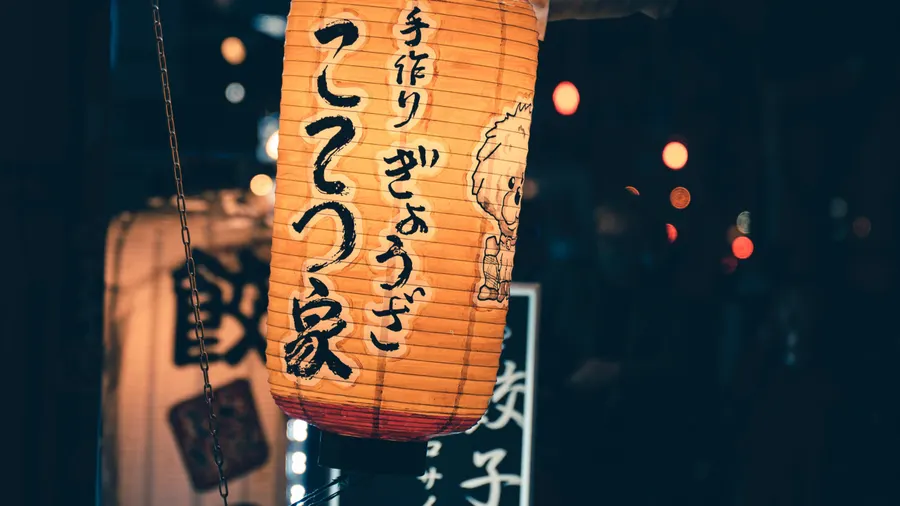 手作り ぎょうざ
こてつ家
餃子